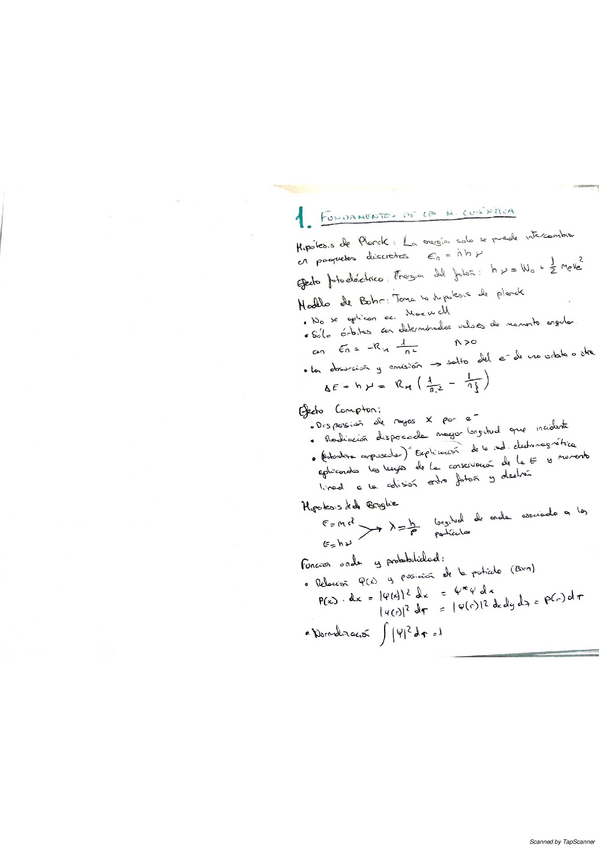 1. FUNDAMENTOS DE LA M. CUÁNTICA
Hipótesis de Planck: La energía solo se puede intercambiar
en paquetes discretos En = nhν
Efecto fotoeléctrico. Energía del fotón: hν = W0 + 1/2 me ve²
Modelo de Bohr: Toma la hipótesis de planck
• No se aplican ec. Maxwell
• Sólo órbitas con determinados valores de momento angular
con En = -RH 1/n² n>0
• La absorción y emisión → salto del e- de una orbita a otra
ΔE = hν = RH (1/ni² - 1/nf²)
Efecto Compton:
• Dispersión de rayos X por e-
• Radiación dispersada mayor longitud que incidente
• (naturaleza corpuscular) Explicación de la rad. electromagnética
aplicando las leyes de la conservación de la E y momento
lineal a la colisión entre fotón y electrón
Hipótesis de Broglie
E = mc²
E = hν
→ λ = h/p longitud de onda asociada a las
partículas
Función onda y probabilidad:
• Relación Ψ(x) y posición de la partícula (Born)
P(x) · dx = |Ψ(x)|² dx = Ψ*Ψ dx
|Ψ(r)|² dτ = |Ψ(r)|² dx dy dz = p(r) dτ
• Normalización ∫ |Ψ|² dτ = 1
Scanned by TapScanner